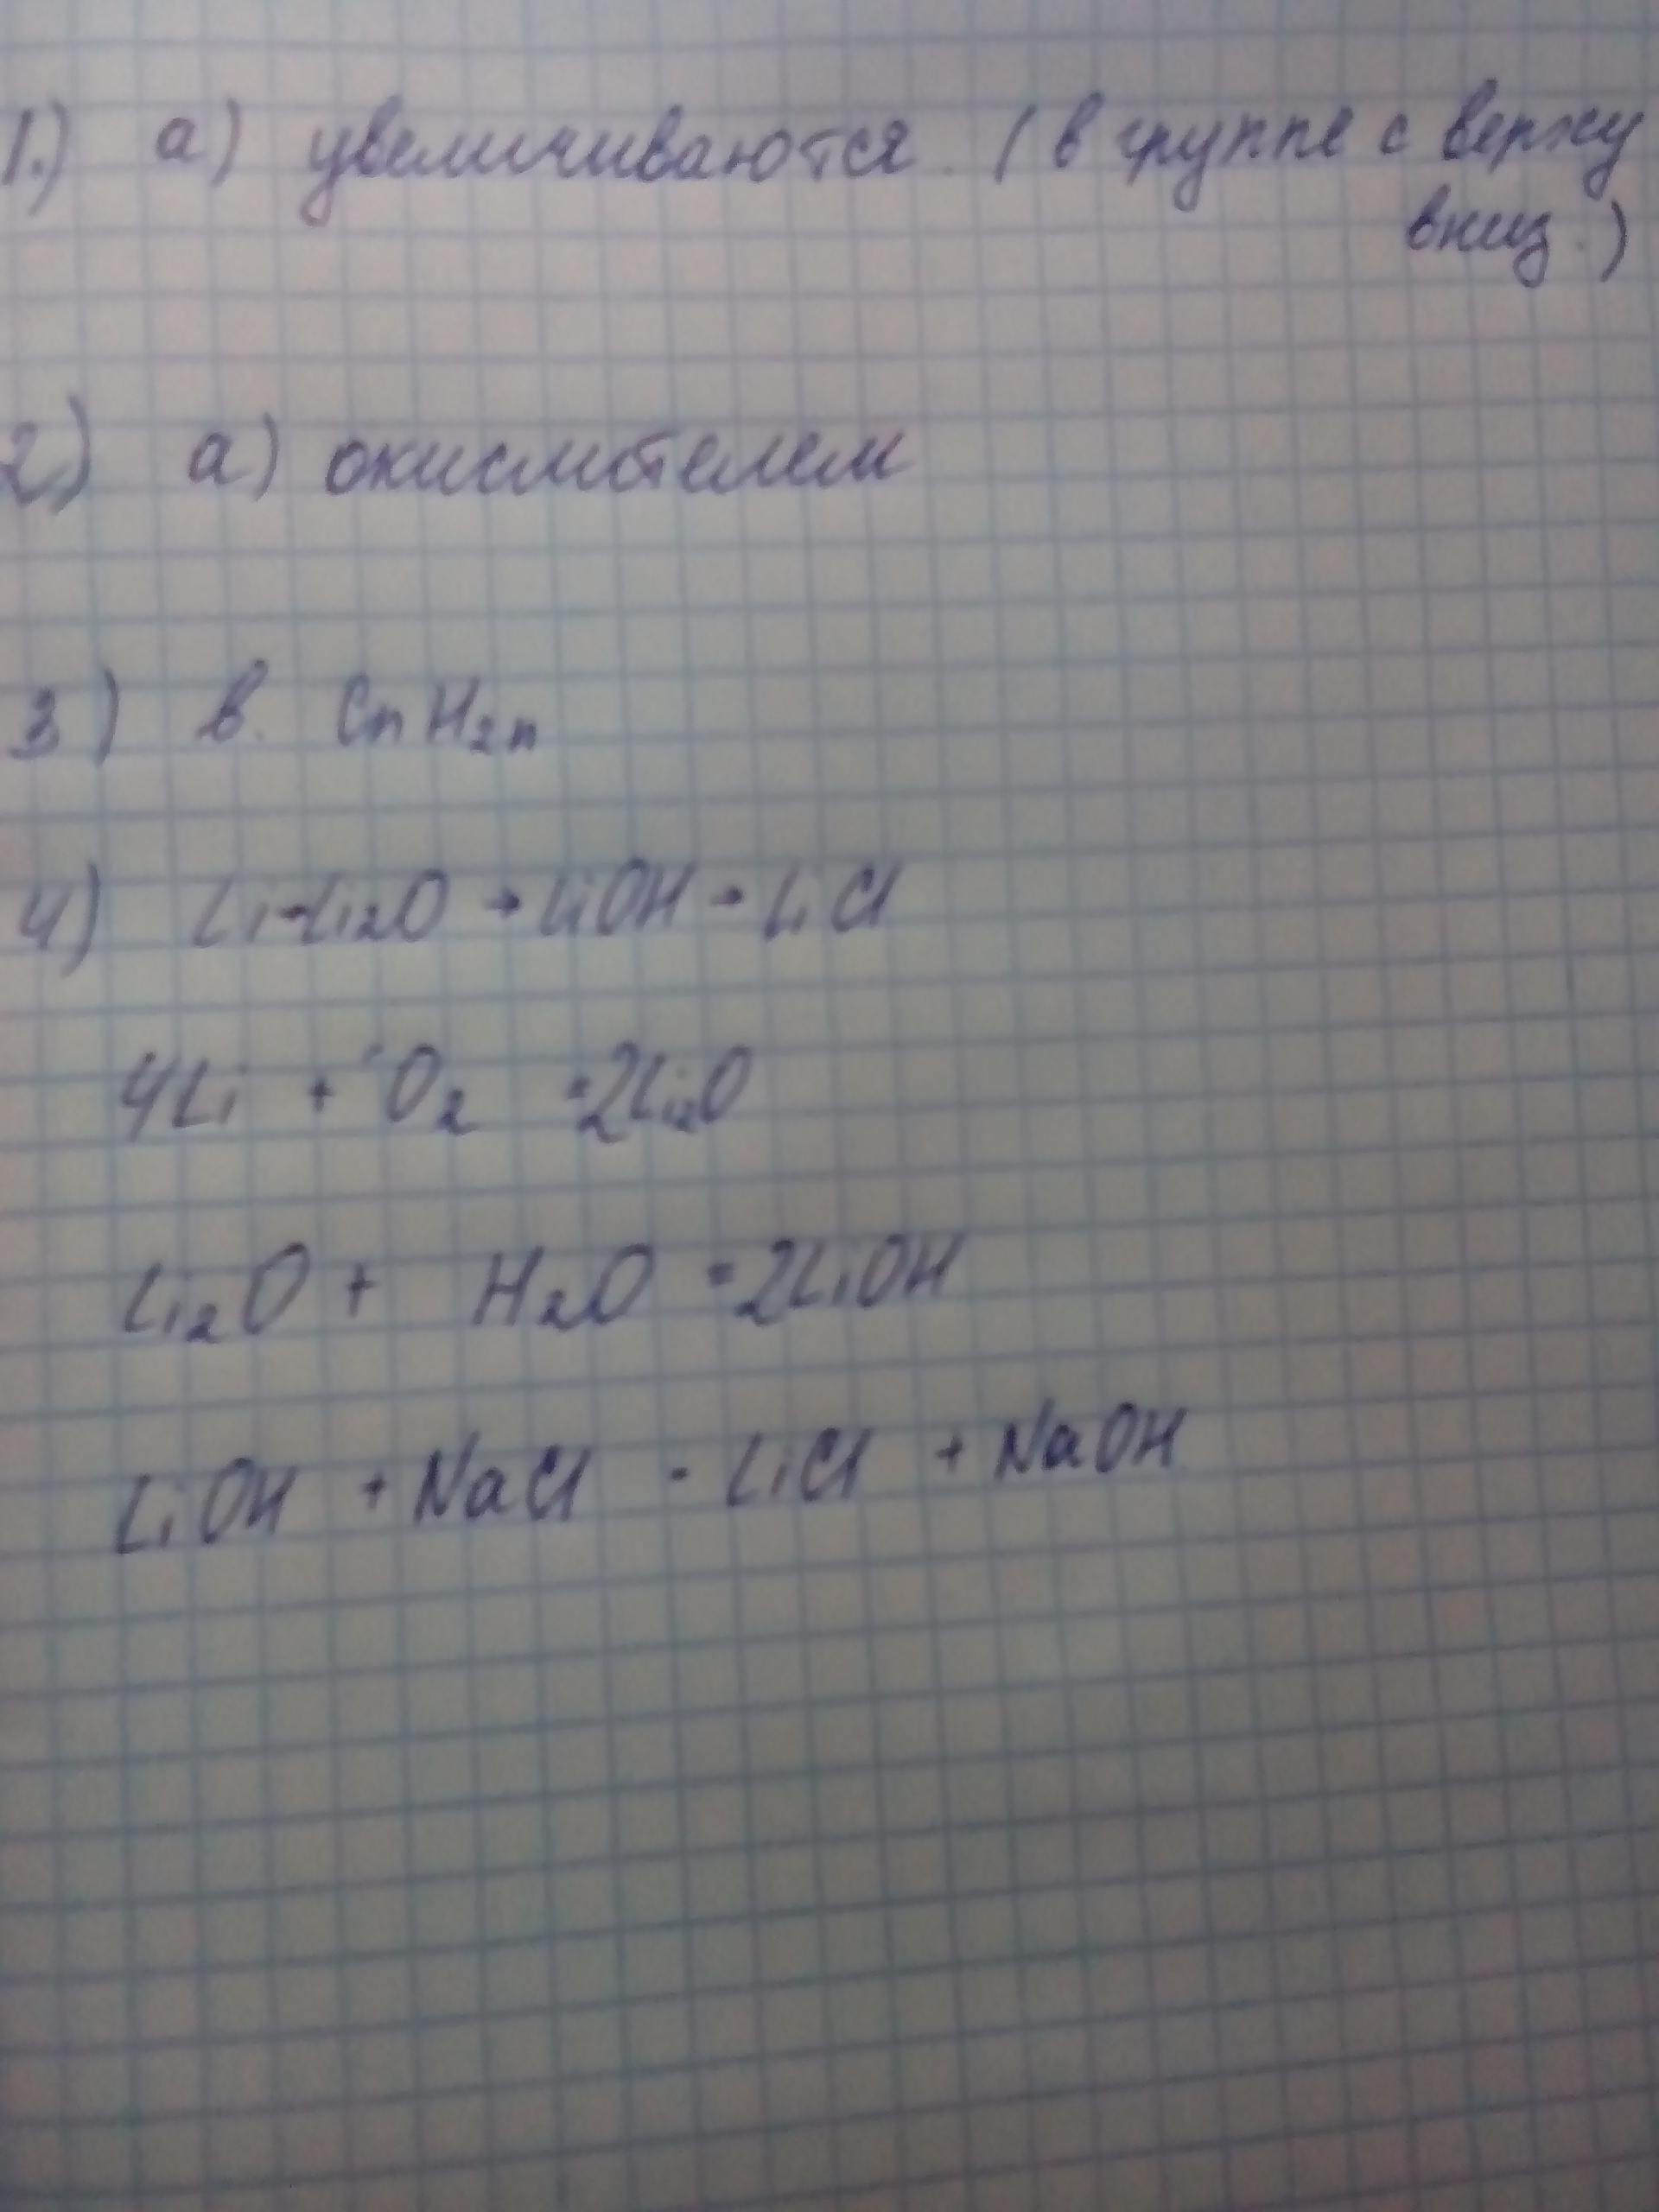 1.) а) увеличиваются. (в группе с верху
вниз.)
2) а) окислителем
3) в. CnH2n
4) Li→Li2O → LiOH → LiCl
4Li + O2 = 2Li2O
Li2O + H2O = 2LiOH
LiOH + NaCl - LiCl + NaOH